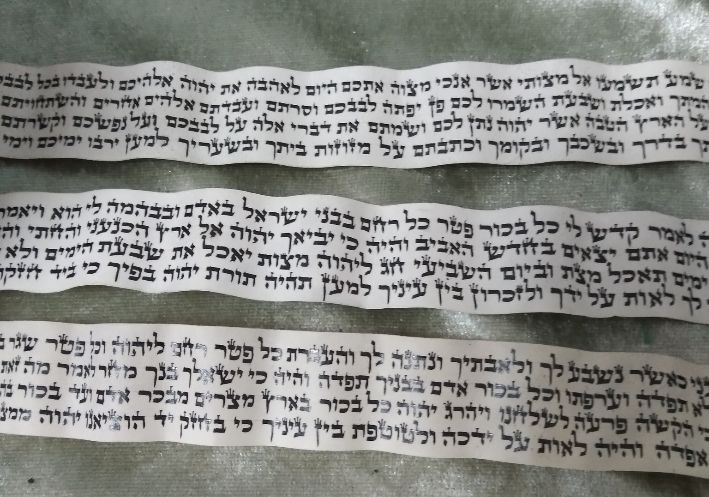 שמע תשמעו אל מצותי אשר אנכי מצוה אתכם היום לאהבה את יהוה אלהיכם ולעבדו בכל לבבכ
המתך ואכלת ושבעת השמרו לכם פן יפתה לבבכם וסרתם ועבדתם אלהים אחרים והשתחויתם
על הארץ הטבה אשר יהוה נתן לכם ושמתם את דברי אלה על לבבכם ועל נפשכם וקשרתם
תך בדרך ובשכבך ובקומך וכתבתם על מזוזות ביתך ובשעריך למען ירבו ימיכם וימי
ה לאמר קדש לי כל בכור פטר כל רחם בבני ישראל באדם ובבהמה לי הוא ויאמר
היום אתם יצאים בחדש האביב והיה כי יביאך יהוה אל ארץ הכנעני והחתי
ימים תאכל מצת וביום השביעי חג ליהוה מצות יאכל את שבעת הימים ולא
לך לאות על ידך ולזכרון בין עיניך למען תהיה תורת יהוה בפיך כי ביד חזקה
כאשר נשבע לך ולאבתיך ונתנה לך והעברת כל פטר רחם ליהוה וכל פטר שגר
לא תפדה וערפתו וכל בכור אדם בבניך תפדה והיה כי ישאלך בנך מחר לאמר מה זאת
כי הקשה פרעה לשלחנו ויהרג יהוה כל בכור בארץ מצרים מבכר אדם ועד בכור
אפדה והיה לאות על ידכה ולטוטפת בין עיניך כי בחזק יד הוציאנו יהוה ממצ